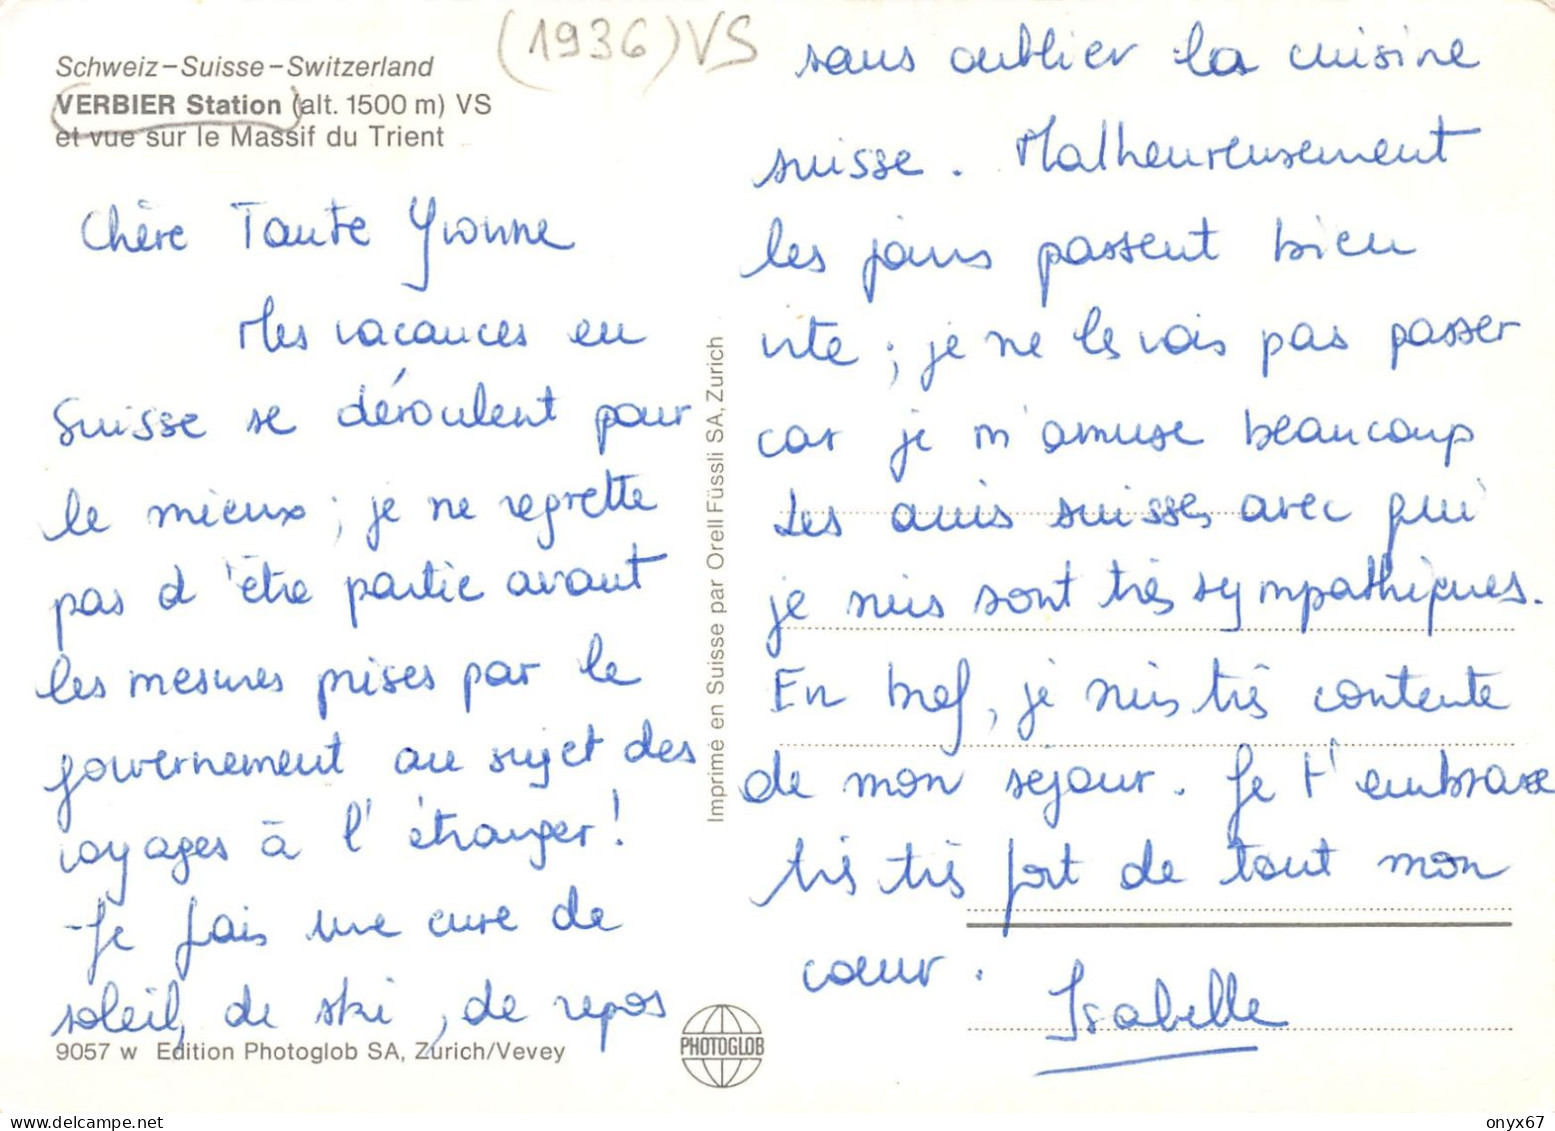 (1936) VS
Schweiz-Suisse-Switzerland
VERBIER Station (alt. 1500 m) VS
et vue sur le Massif du Trient
Chère Tante Yvonne
Mes vacances en
Suisse se déroulent pour
le mieux ; je ne regrette
pas d'être partie avant
les mesures prises par le
gouvernement au sujet des
voyages à l'étranger !
Je fais une cure de
soleil, de ski, de repos
9057 w Edition Photoglob SA, Zürich/Vevey
Imprimé en Suisse par Orell Füssli SA, Zurich
PHOTOGLOB
sans oublier la cuisine
suisse. Malheureusement
les jours passent bien
vite ; je ne les vois pas passer
car je m'amuse beaucoup
Les amis suisses avec qui
je suis sont très sympathiques.
En bref, je suis très contente
de mon séjour. Je t'embrasse
très très fort de tout mon
cœur.
Isabelle
delcampe.net
onyx67